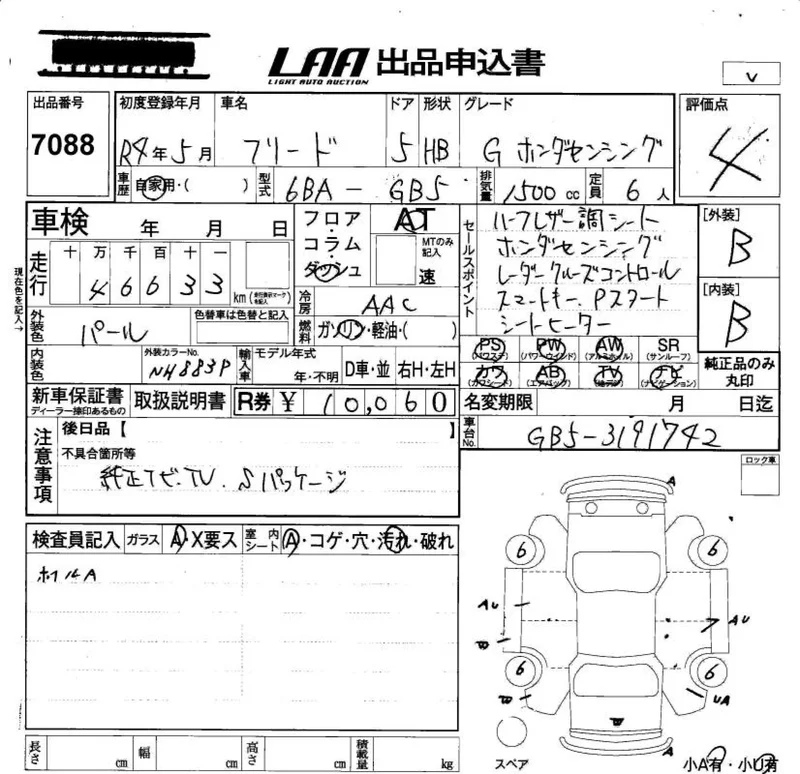 LAA 出品申込書
LIGHT AUTO AUCTION
V
出品番号
7088
初度登録年月
R4年5月
車名
フリード
ドア
5
形状
HB
グレード
G ホンダセンシング
評価点
4
車歴
自家用・( )
型式
6BA - GB5
排気量
1500 cc
定員
6 人
車検 年 月 日
フロア・コラム・ダッシュ
AT
MTのみ記入
速
セールスポイント
ハーフレザー調シート
ホンダセンシング
レーダークルーズコントロール
スマートキー、Pスタート
シートヒーター
[外装]
B
[内装]
B
現在色を記入→
走行
十 万 千 百 十 一
4 6 6 3 3
km
冷房
AAC
燃料
ガソリン・軽油・( )
外装色
パール
色替車は色替と記入
内装色
外装カラーNo.
NH883P
輸入車
モデル年式
年・不明
D車・並
右H・左H
PS (パワステ)
PW (パワーウインド)
AW (アルミホイル)
SR (サンルーフ)
カワ (カワシート)
AB (エアバック)
TV (地デジ)
ナビ (ナビゲーション)
純正品のみ丸印
新車保証書
ディーラー捺印あるもの
取扱説明書
R券 ¥ 10,060
名変期限 月 日迄
車台No.
GB5-3191742
注意事項
後日品【 】
不具合箇所等
純正ナビ、TV、Sパッケージ
ロック車
検査員記入
ガラス
A・X要ス
室内シート
A・コゲ・穴・汚れ・破れ
ホイルA
A
6 6
AU
AU
6 6
UA
A
スペア
小A有・小U有
長さ cm
幅 cm
高さ cm
積載量 kg